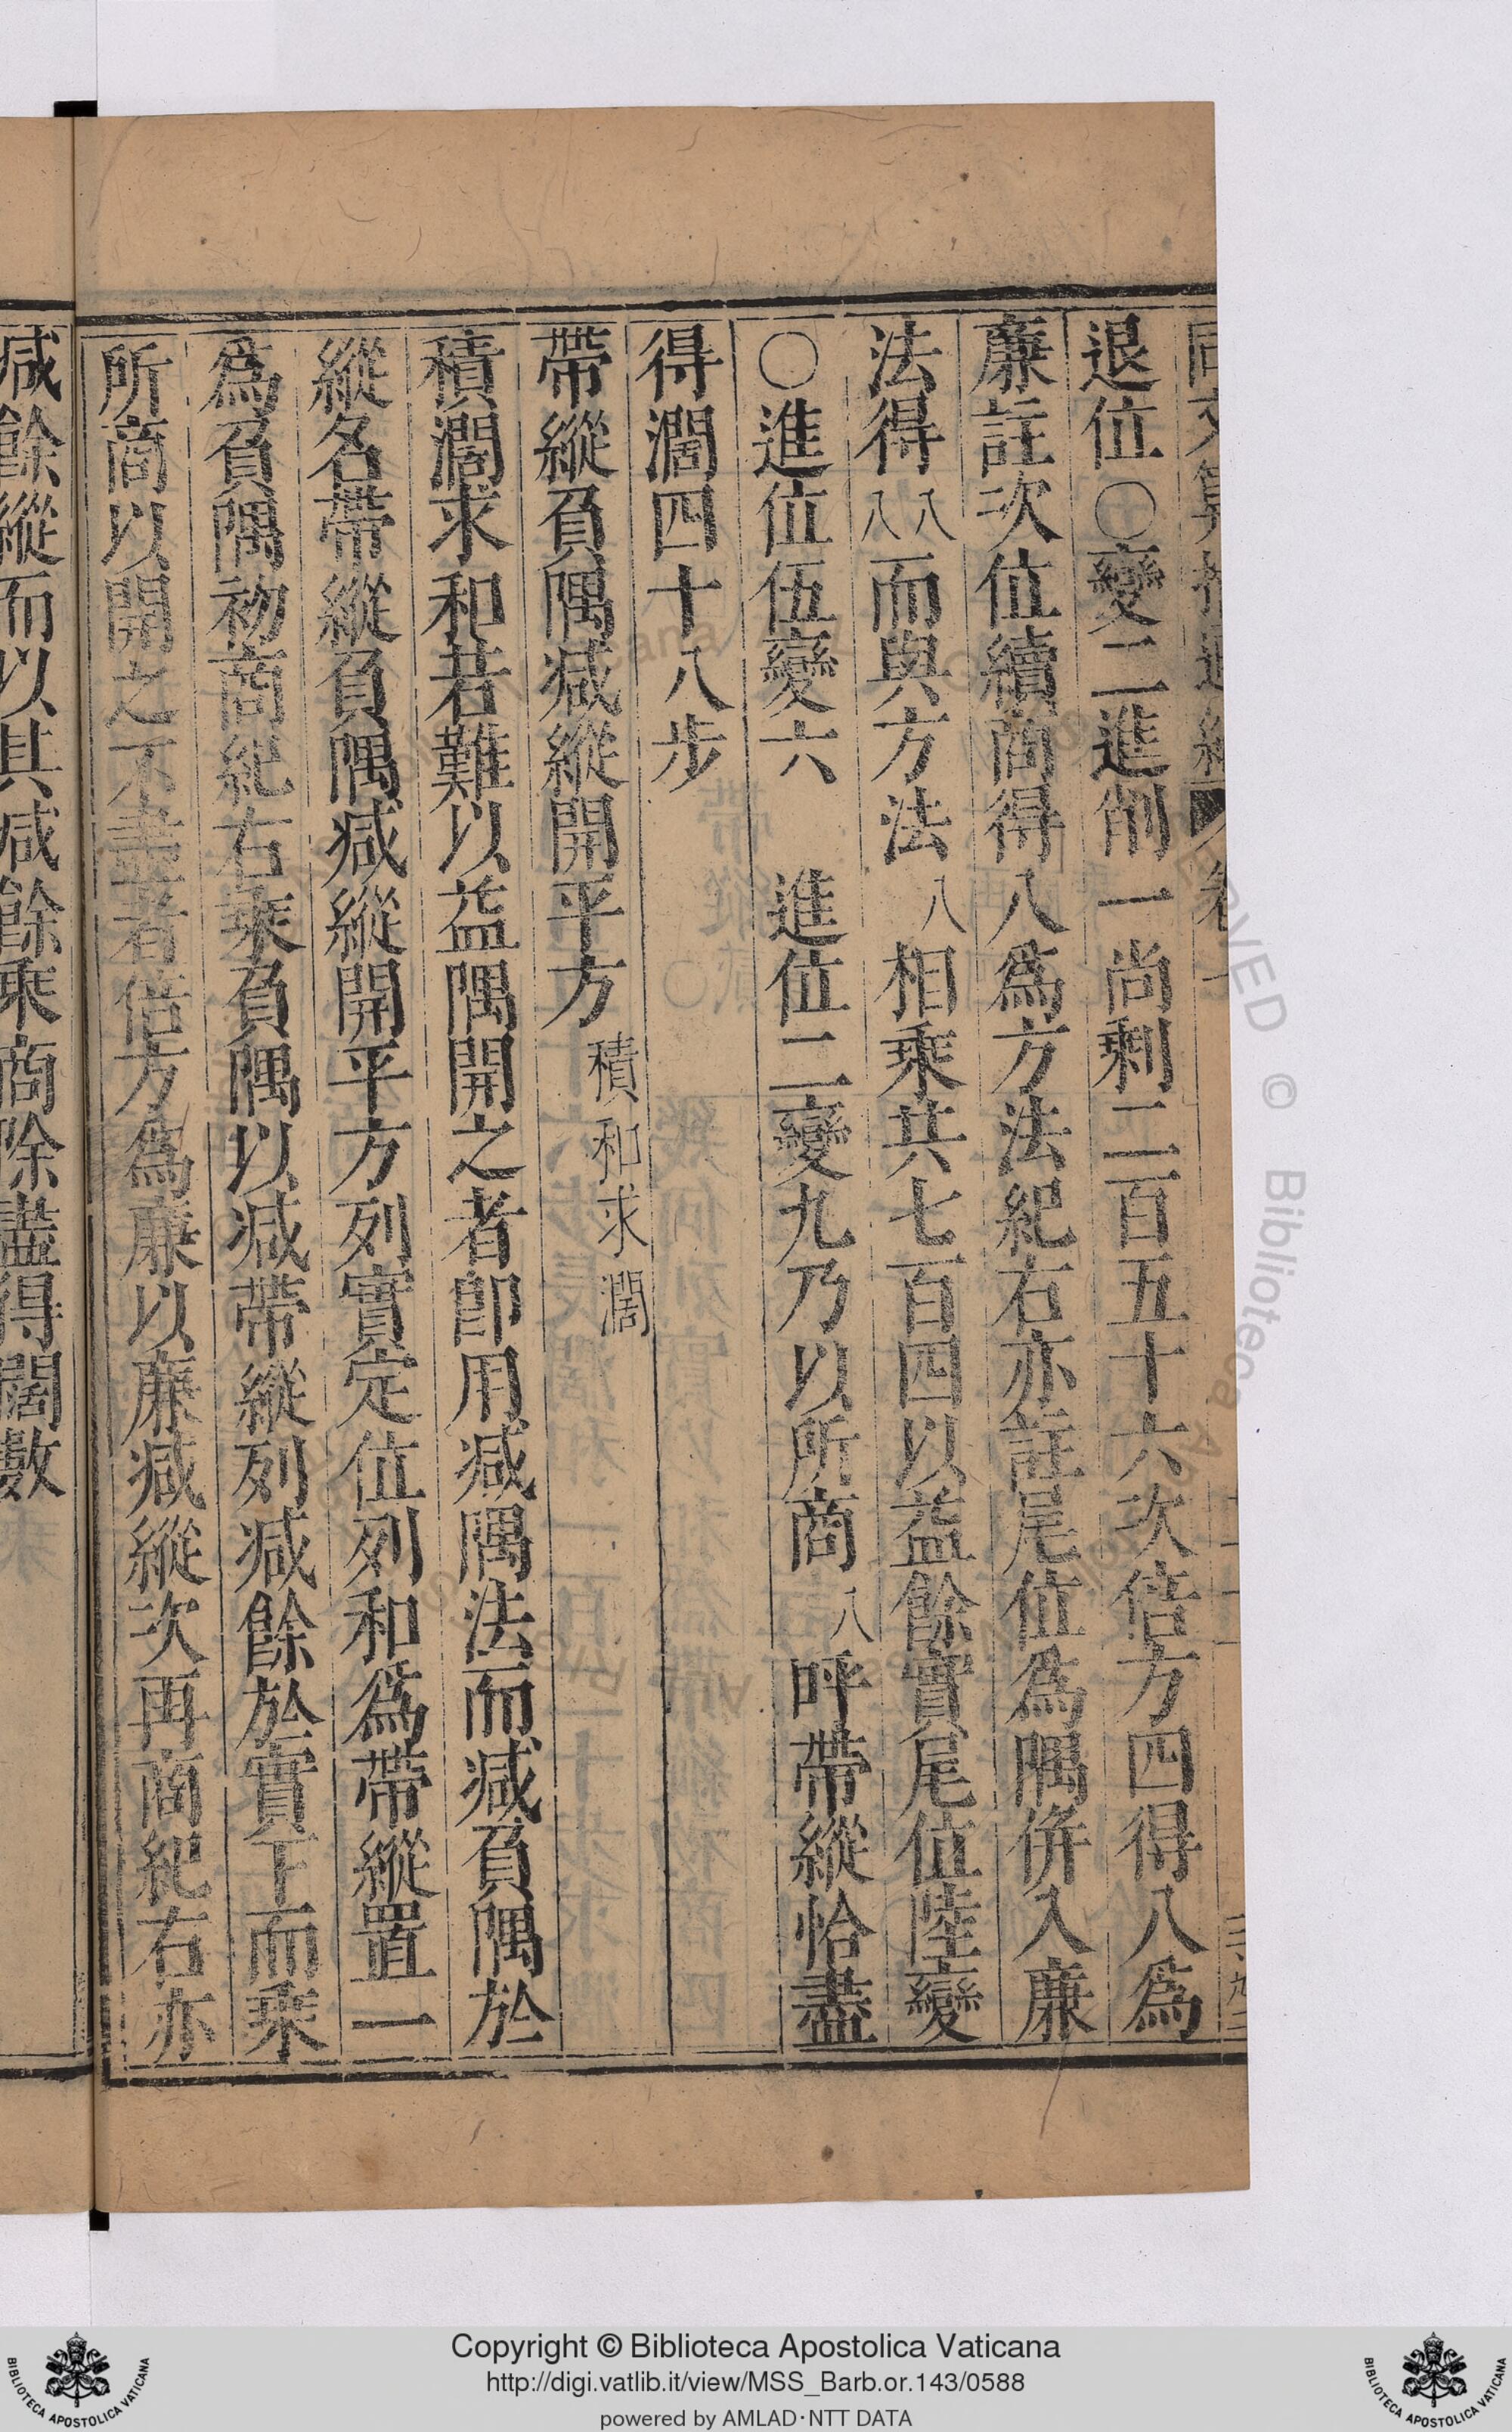 退位○變二進削一尚剩二百五十六次倍方四得八爲
廉註次位續商得八爲方法紀右亦註尾位爲隅併入廉
法得八八而與方法八相乘共七百四以益餘實尾位陸變
○進位伍變六　進位二變九乃以所商八呼帶縱恰盡
得濶四十八步
帶縱負隅減縱開平方積和求濶
積濶求和若難以益隅開之者卽用減隅法而減負隅於
縱名帶縱負隅減縱開平方列實定位列和爲帶縱置一
爲負隅初商紀右乘負隅以減帶縱列減餘於實下而乘
所商以開之不盡者倍方爲廉以廉減縱次再商紀右亦
減餘縱而以其減餘乘商除盡得闊數
RVED © Biblioteca
Copyright © Biblioteca Apostolica Vaticana
http://digi.vatlib.it/view/MSS_Barb.or.143/0588
powered by AMLAD·NTT DATA
BIBLIOTECA APOSTOLICA VATICANA
BIBLIOTECA APOSTOLICA VATICANA